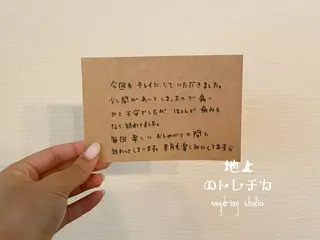 今回も キレイに して いただきました。
少し間があいてしまったので 痛い
かと 不安でしたが ほとんど 痛みも
なく 終わりました。
毎回 楽しい おしゃべりの 間に
終わって しまいます。来月も楽しみにしてます
地上
のトレチカ
sugaring studio